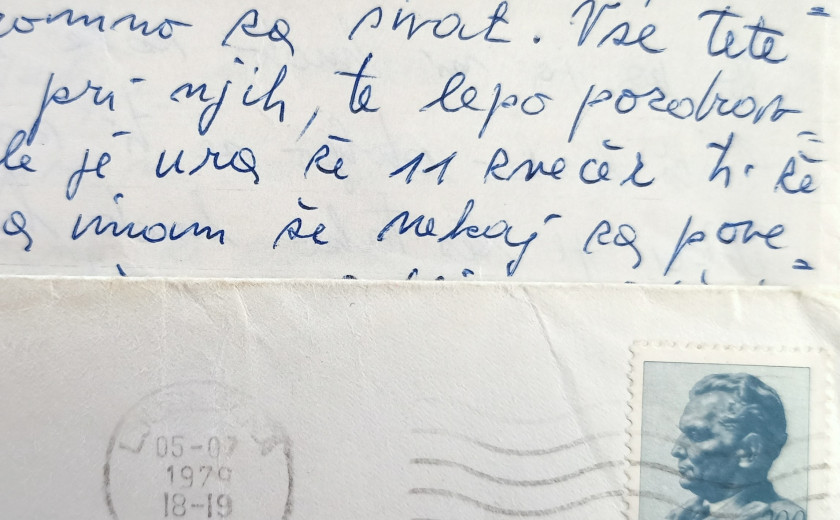 za šivat. Vse tete=
pri njih, te lepo pozdrav=
je ura že 11 zvečer h. že
imam še nekaj za pove=
05-07
1979
18-19